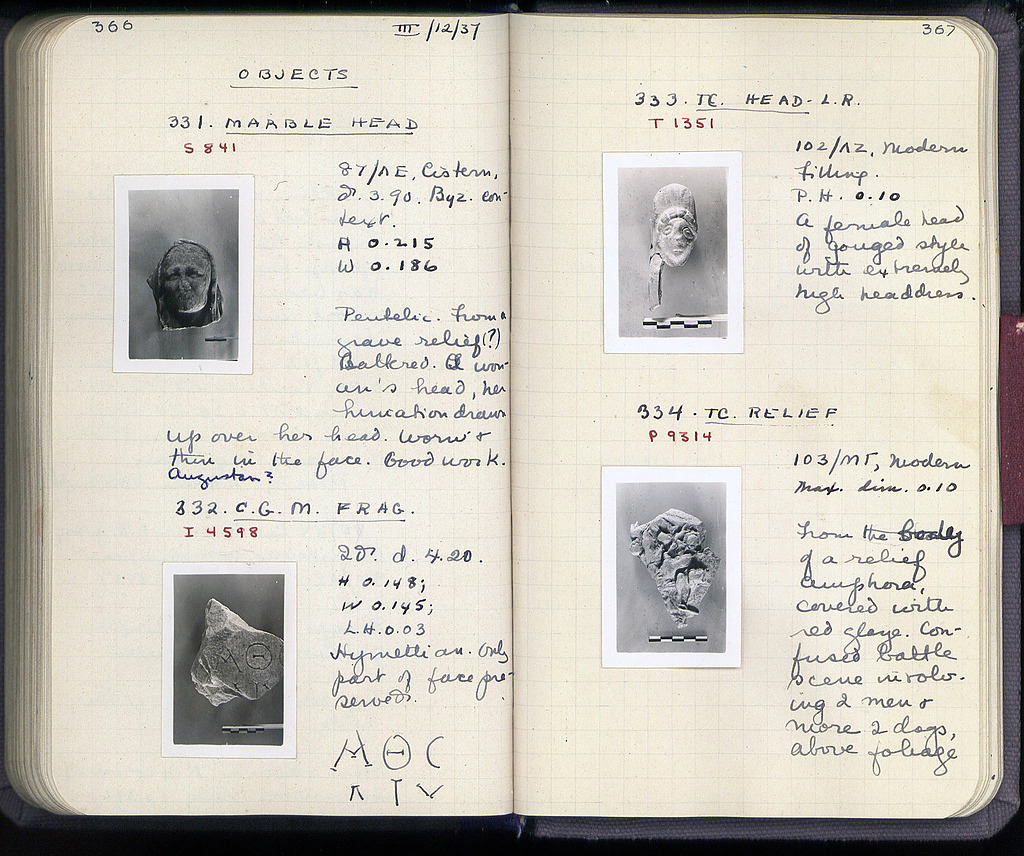 366
III/12/37
OBJECTS
331. MARBLE HEAD
S 841
87/ΛΕ, Cistern,
d. 3.90. Byz. con-
text.
H 0.215
W 0.186
Pentelic. From a
grave relief(?)
Battered. A wom-
an's head, her
himation drawn
up over her head. Worn &
thin in the face. Good work.
Augustan?
332. C.G.M. FRAG.
I 4598
ID. d. 4.20.
H 0.148;
W 0.145;
L.H. 0.03
Hymettian. Only
part of face pre-
served.
Α Θ C
367
333. TC. HEAD - L.R.
T 1351
102/ΛΖ, Modern
filling.
P.H. 0.10
A female head
of gouged style
with extremely
high headdress.
334. TC. RELIEF
P 9314
103/ΜΓ, Modern
Max. dim. 0.10
From the body
of a relief
amphora,
covered with
red glaze. Con-
fused battle
scene involv-
ing 2 men &
more 2 dogs,
above foliage